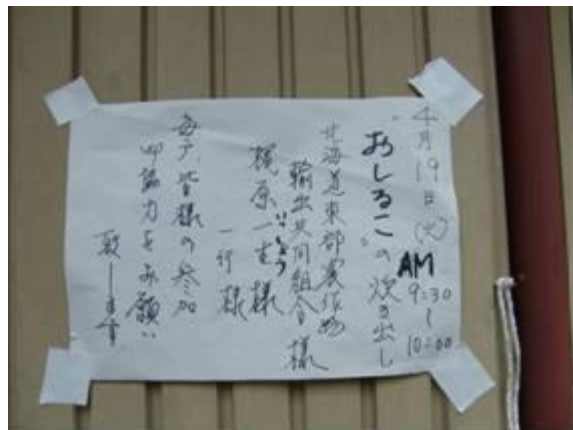 4月19日(火)
AM 9:30～10:00
"おしるこ"の炊き出し
北海道東部農作物
輸出共同組合様
梶原一生様
一行様
毎戸、皆様の参加
御協力をお願い